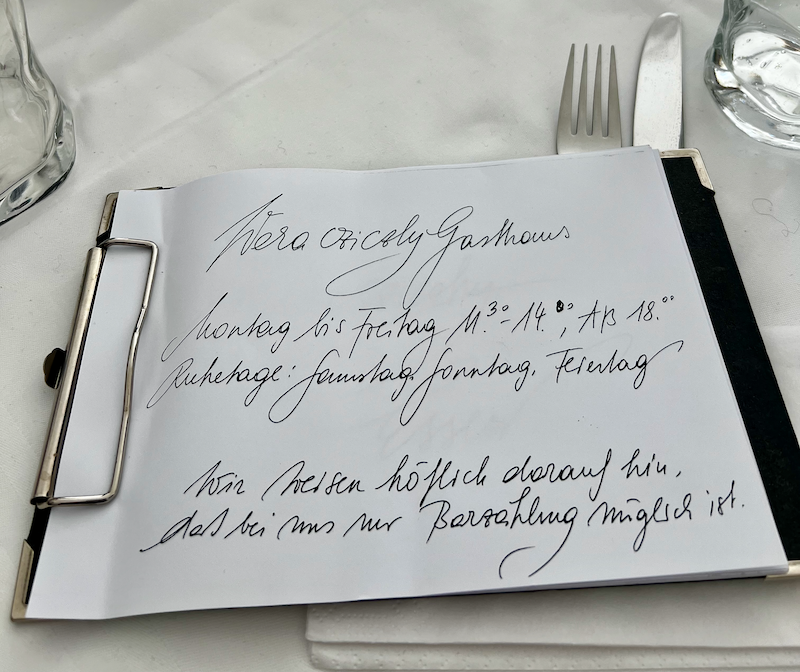 Vera Cziczly Gasthaus
Montag bis Freitag 11.³⁰-14.⁰⁰, AB 18.⁰⁰
Ruhetage: Samstag, Sonntag, Feiertag
Wir weisen höflich darauf hin,
daß bei uns nur Barzahlung möglich ist.